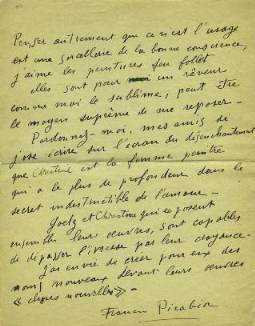 Penser autrement que ce n'est l'usage
est une sorcellerie de la bonne conscience,
j'aime les peintures feu follet
elles sont pour un rêveur
comme moi le sublime, peut être
le moyen suprême de me reposer.
Pardonnez-moi, mes amis si
j'ose écrire sur l'écran du désenchantement
que Christine est la femme peintre
qui a le plus de profondeur dans le
secret indestructible de l'amour.
Goetz et Christine qui exposent
ensemble leurs œuvres, sont capables
de dépasser l'ivresse par leur croyance.
J'ai envie de créer pour eux des
mots nouveaux devant leurs œuvres
« nouvelles » -
Francis Picabia